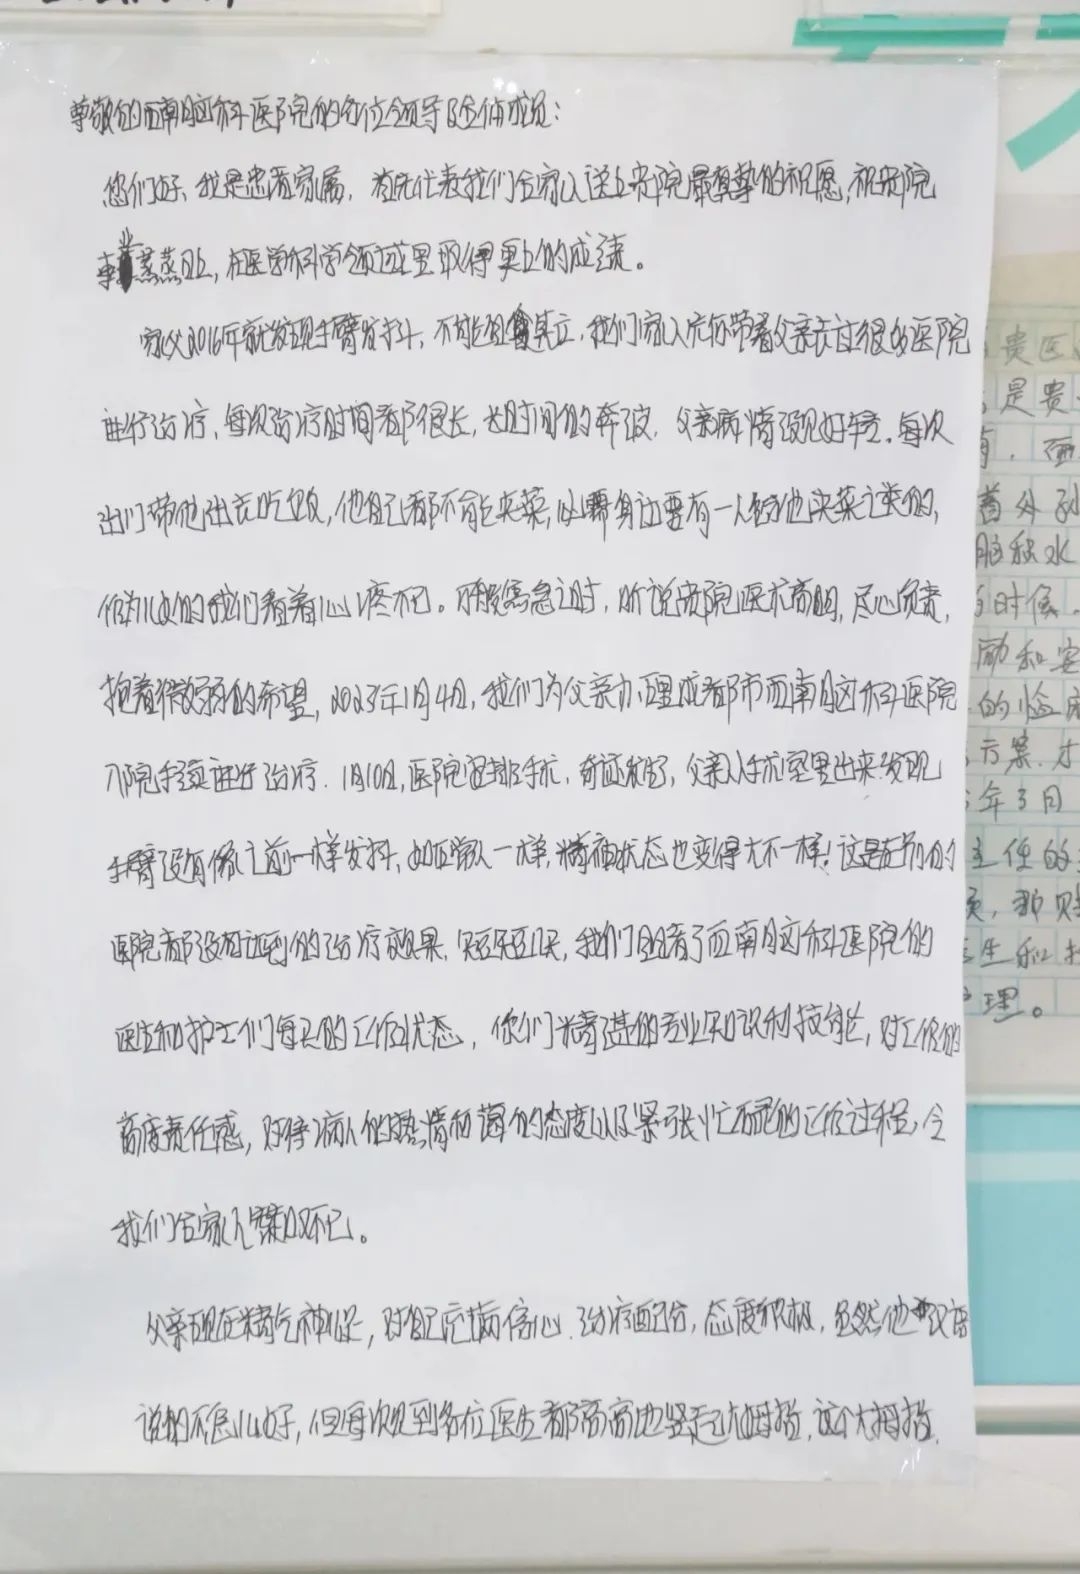 尊敬的西南脑科医院的各位领导及全体成员：
您们好，我是患者家属，首先代表我们全家人送上贵院最真挚的祝愿，祝贵院
蒸蒸日上，在医学科学领域里取得更上的成绩。
家父2016年就发现手臂发抖，不能，我们家人陪着父亲去过很多医院
进行治疗，每次治疗时间都很长，长时间的奔波，父亲病情没见好转。每次
出门带他出去吃饭，他自己都不能夹菜，必需身边要有一人给他夹菜之类的，
作为儿女的我们看着心疼不已。万般焦急之时，听说贵院医术高明，尽心负责，
抱着微弱的希望，2023年1月4日，我们为父亲办理成都市西南脑科医院
入院手续进行治疗．1月10日，医院安排手术，奇迹发生，父亲从手术室里出来发现
手臂没有像之前一样发抖，如正常人一样，精神状态也变得大不一样！这是在别的
医院都没有达到的治疗效果，短短几天，我们目睹了西南脑科医院的
医生和护士们每天的工作状态，你们精湛的专业知识和技能，对工作的
高度责任感，对待病人的热情和蔼的态度以及紧张忙碌的工作过程，令
我们全家人钦佩不已。
父亲现在精气神足，对自己充满信心．治疗配合，态度积极，虽然他
说的不是儿好，但每次见到各位医生都高高地竖起大拇指，这个大拇指，
贵医
是贵
着外孙
脑积水
时候，
励和安
的临床
方案．才
年3月
主任的
生和护
理。